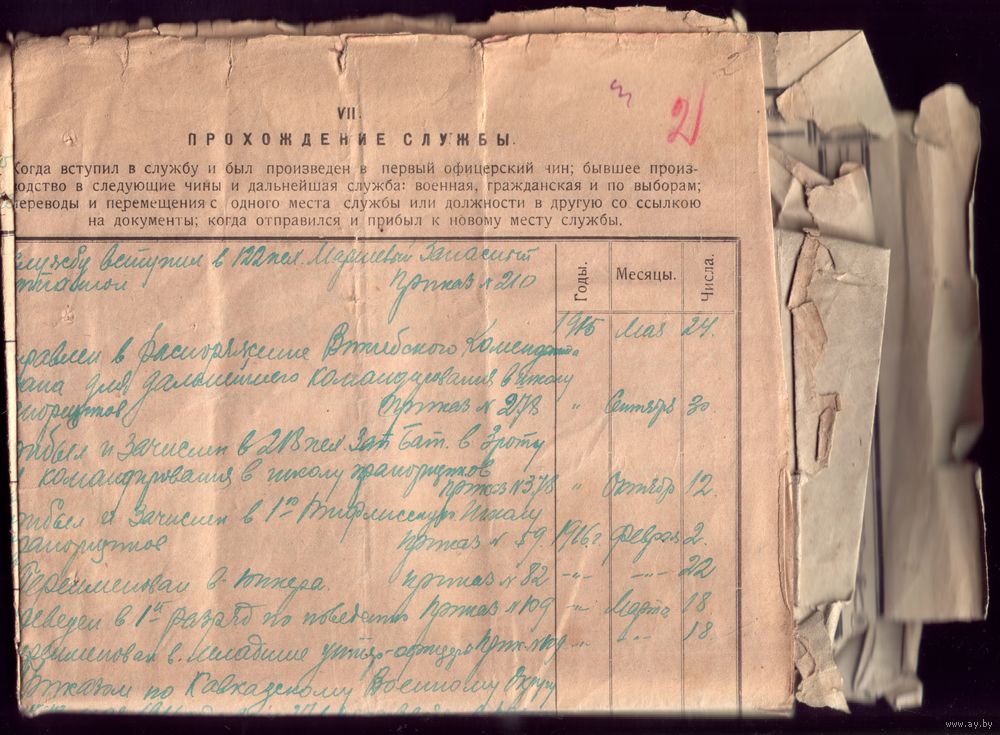 2
VII.
ПРОХОЖДЕНИЕ СЛУЖБЫ.
Когда вступил в службу и был произведен в первый офицерский чин; бывшее произ-
водство в следующие чины и дальнейшая служба: военная, гражданская и по выборам;
переводы и перемещения с одного места службы или должности в другую со ссылкою
на документы; когда отправился и прибыл к новому месту службы.
Годы. Месяцы. Числа.
службу вступил в 122 пех. Маршевый Запасный
Приказ № 210
1915 Мая 24.
в распоряжение Витебского
для дальнейшего командирования в школу
Приказ № 278 " Сентября 30.
и зачислен в 213 пех. Зап. Бат. в роту
командирования в школу прапорщиков
Приказ № 378 " Октябр 12.
и зачислен в 1ю Тифлисскую Школу
Приказ № 59. 1916 г. Февраля 2.
Переименован в юнкера. Приказ № 82 -"- -"- 22
в 1й разряд по поведению Приказ № 109 -"- Марта 18.
в младшие унтер-офицеры Приказ № 109 -"- -"- 18
Приказом по Кавказскому Военному Округу
www.ay.by